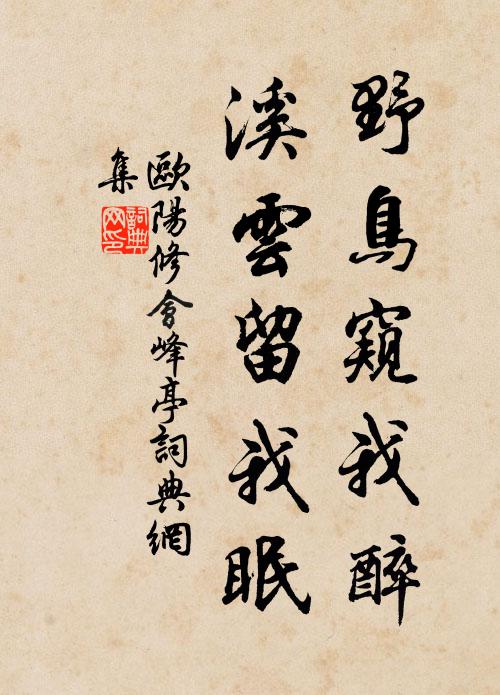 野鳥窺我醉
溪雲留我眠
歐陽修會峰亭詞典網
集
詞典網印